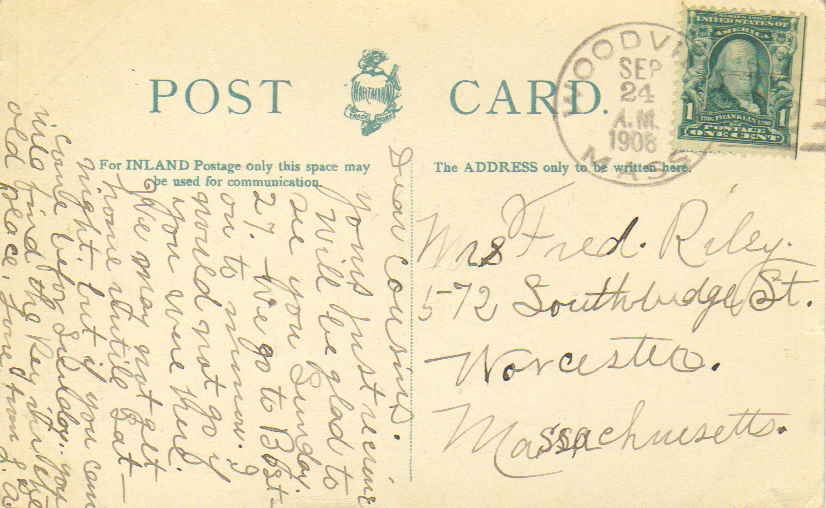 POST CARD.
HARTMANN
TRADE MARK
WOODVI
SEP
24
A.M.
1908
MASS
SERIES 1902
UNITED STATES OF
AMERICA
1 1
FRANKLIN
POSTAGE
ONE CENT
For INLAND Postage only this space may
be used for communication.
The ADDRESS only to be written here.
Dear Cousins.
Yours just receive
Will be glad to
see you Sunday
27. We go to Bost-
on to morrow. I
would not go if
you were here.
We may not get
home untill Sat-
night. but if you can
come before Sunday. you
will find the key in
old place. Love from L. A.
Mrs Fred. Riley.
572 Southbridge St.
Worcester.
Massachusetts.